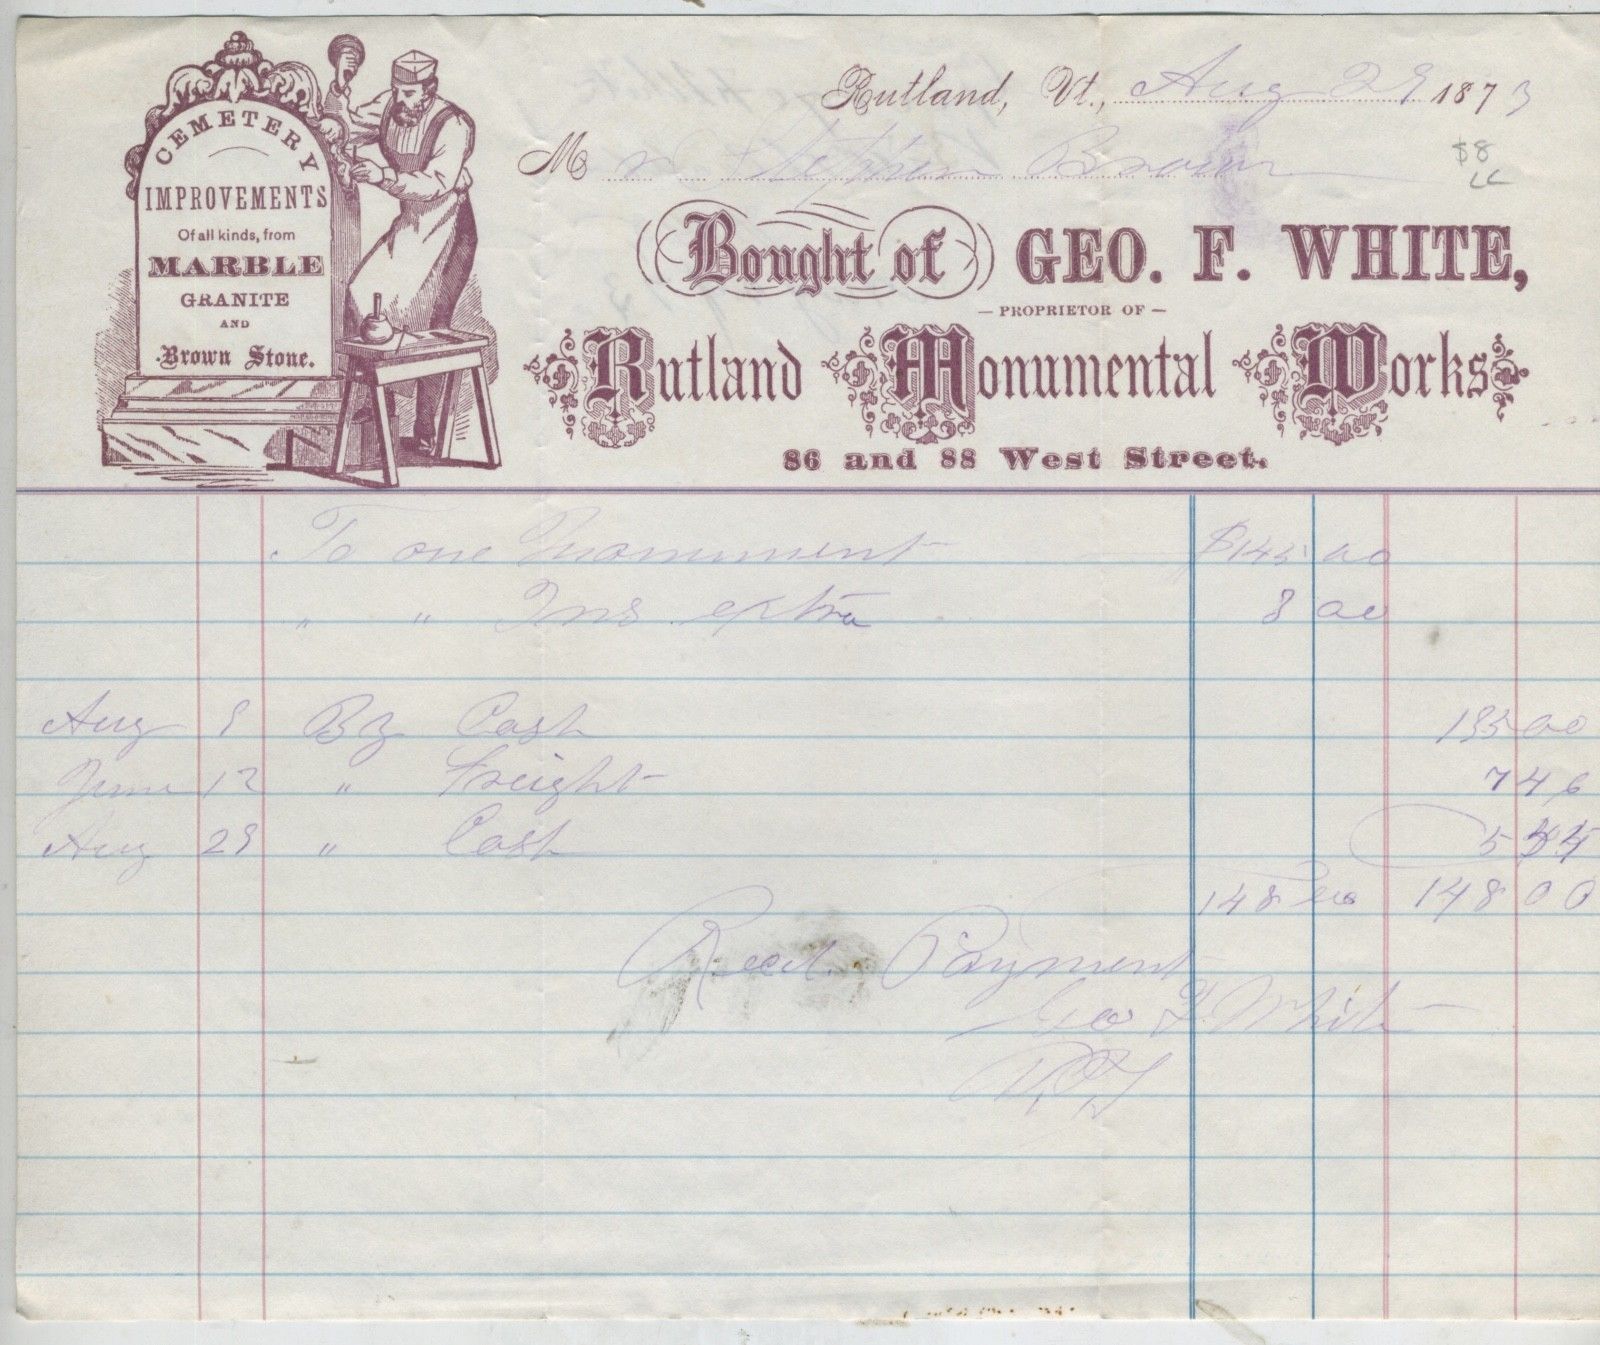 CEMETERY
IMPROVEMENTS
Of all kinds, from
MARBLE
GRANITE
AND
Brown Stone.
Rutland, Vt., Aug 29 1873
Mr Stephen Brown
$8
Bought of GEO. F. WHITE,
— PROPRIETOR OF —
Rutland Monumental Works
86 and 88 West Street.
To one Monument $145 00
" " Ins extra 8 00
Aug 9 By Cash 135 00
June 12 " Freight 7 46
Aug 29 " Cash 5 54
148 00 148 00
Recd. Payment
Geo F. White